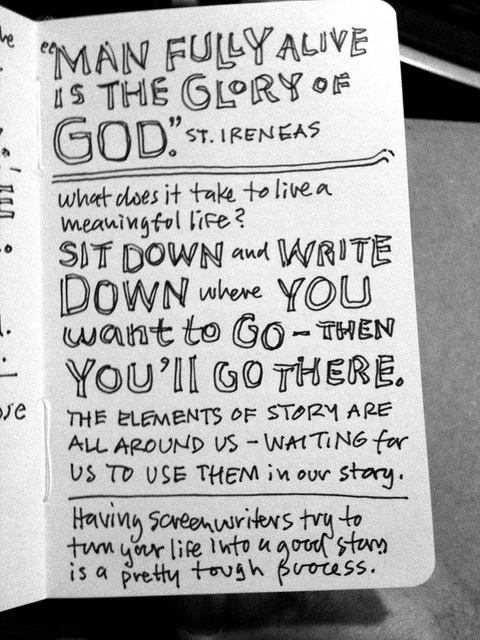 "MAN FULLY ALIVE
IS THE GLORY OF
GOD." ST. IRENEAS
what does it take to live a
meaningful life?
SIT DOWN and WRITE
DOWN where YOU
want to GO - THEN
YOU'll GO THERE.
THE ELEMENTS OF STORY ARE
ALL AROUND US - WAITING for
US TO USE THEM in our story.
Having screenwriters try to
turn your life into a good story
is a pretty tough process.